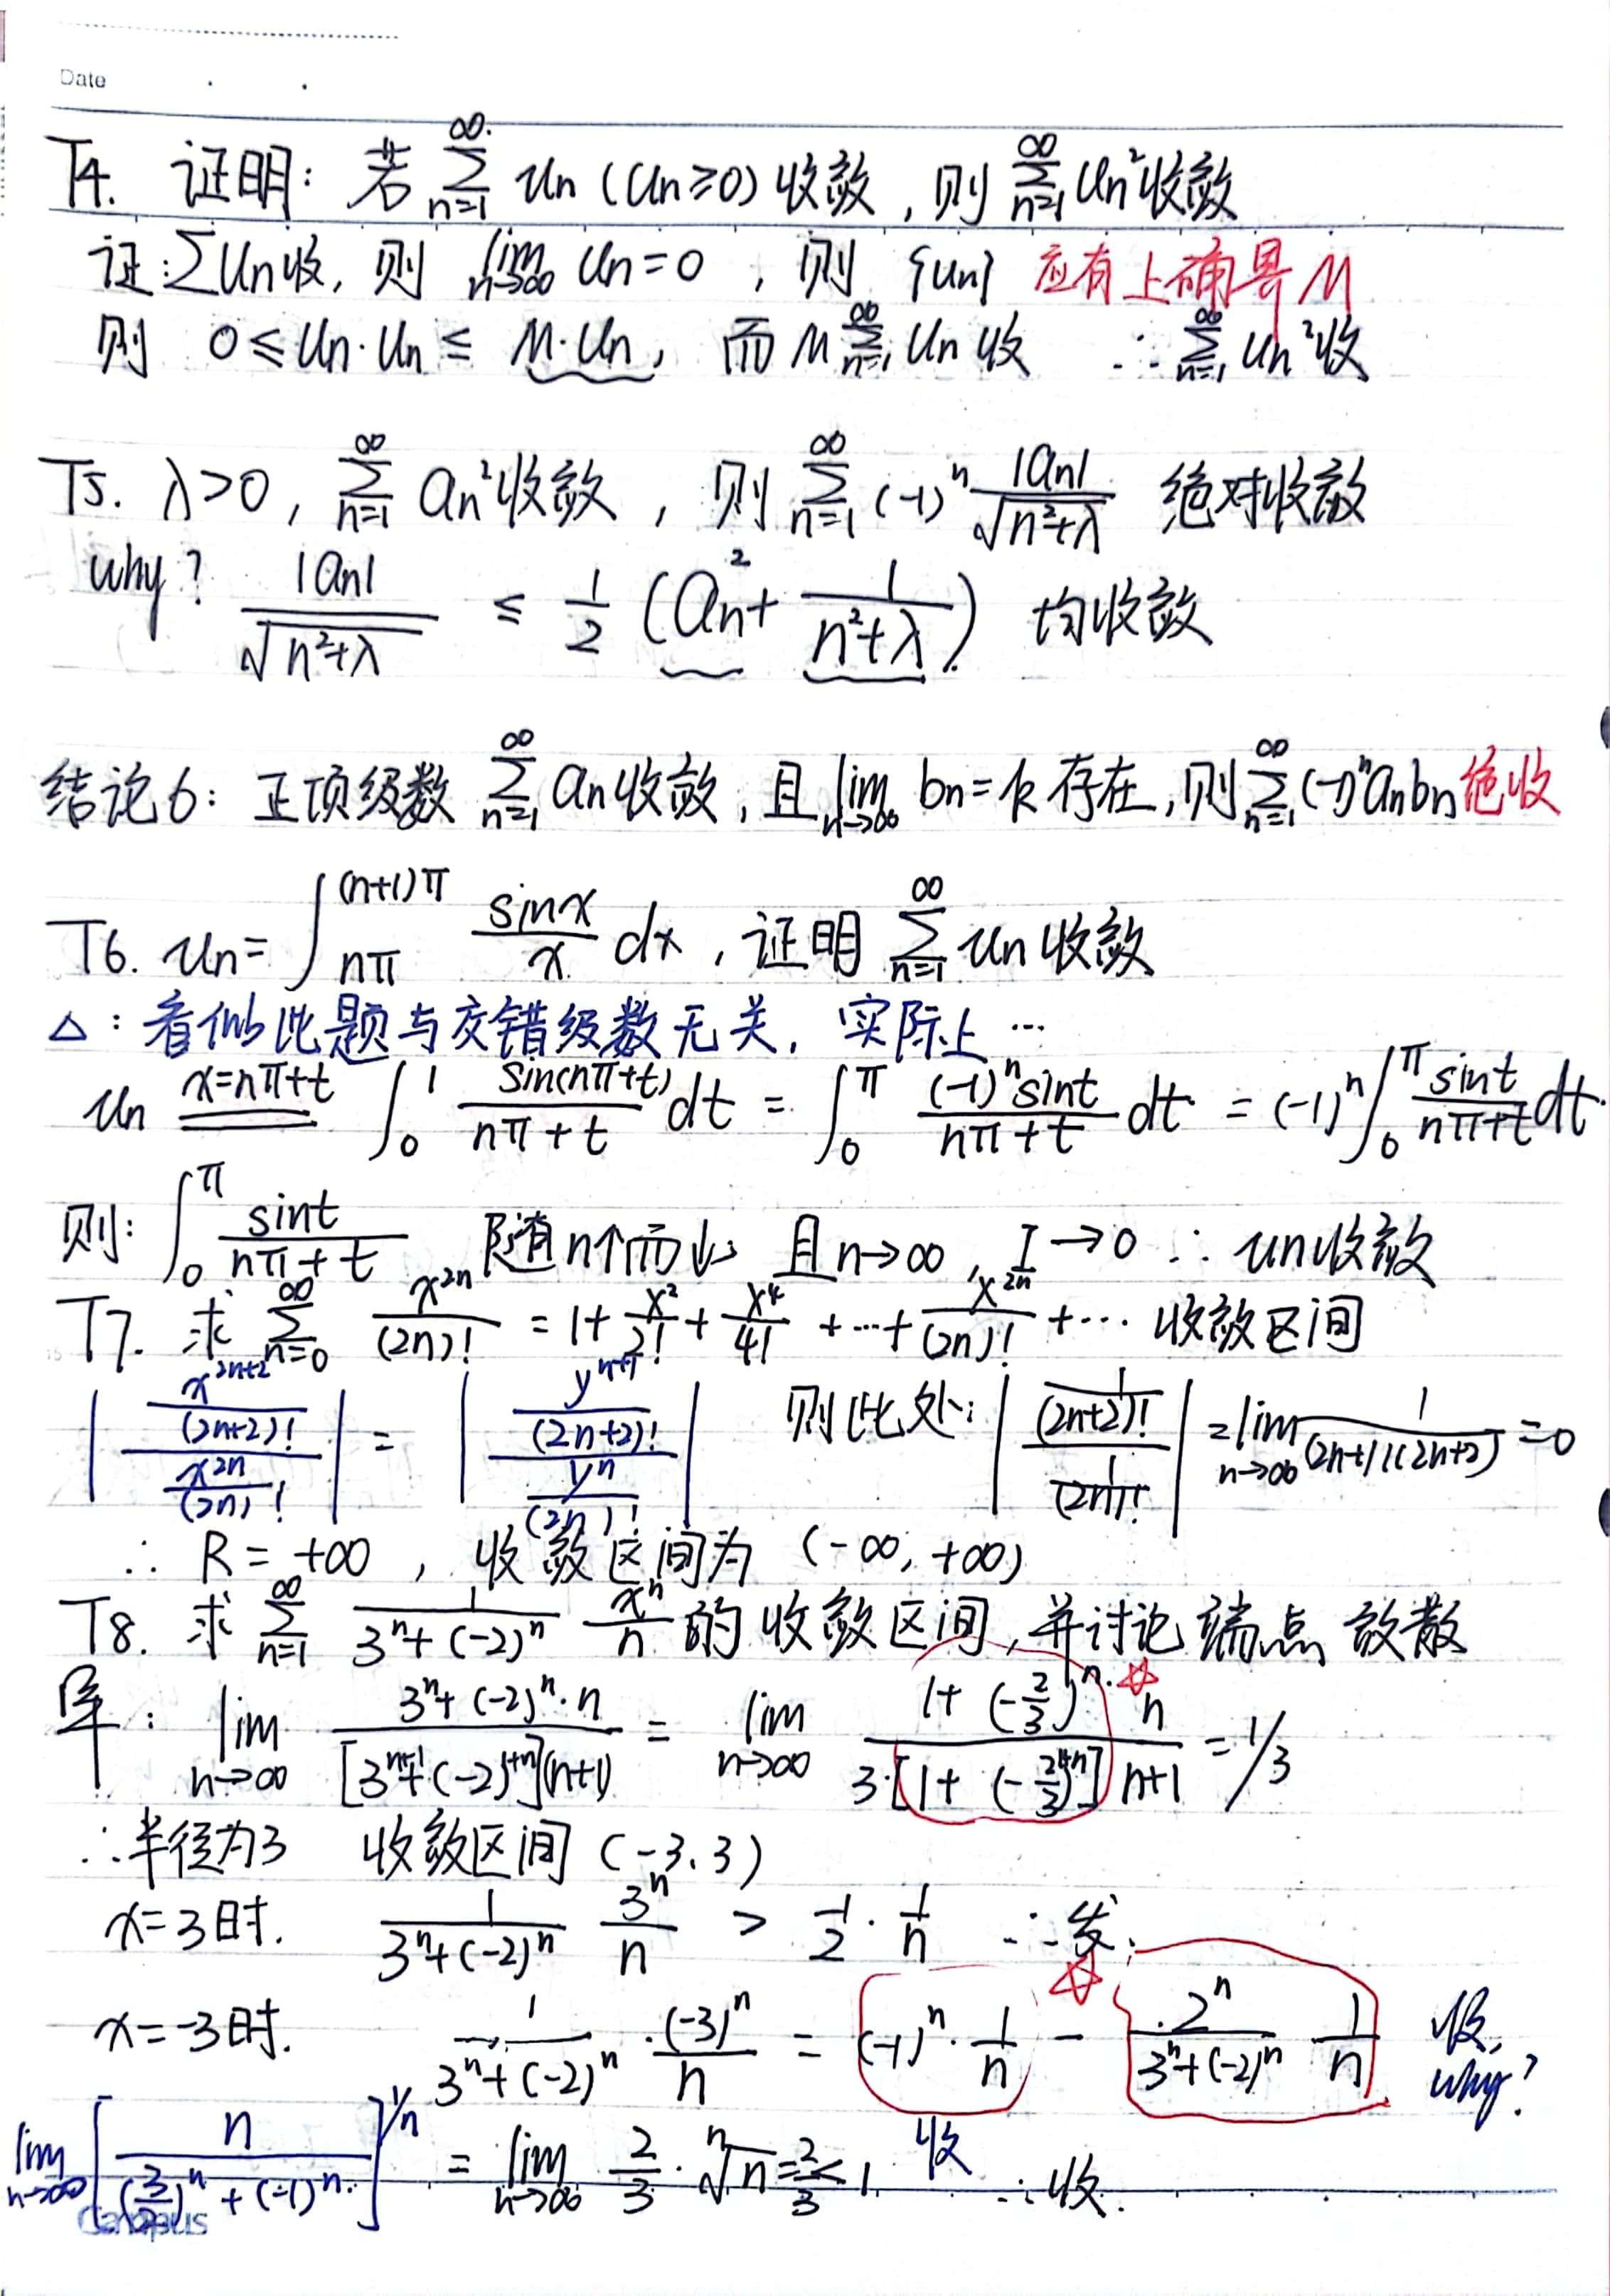 Date
T4. 证明：若 ∑_{n=1}^{∞} Un (Un≥0) 收敛，则 ∑_{n=1}^{∞} Un²收敛
证：∑Un收，则 lim_{n→∞} Un=0 ，则 {un} 应有上确界M
则 0≤Un·Un≤ M·Un，而 M∑_{n=1}^{∞} Un 收 ∴ ∑_{n=1}^{∞} Un²收
T5. λ>0，∑_{n=1}^{∞} an²收敛 ，则 ∑_{n=1}^{∞} (-1)^n |an|/√(n²+λ) 绝对收敛
why? |an|/√(n²+λ) ≤ 1/2 (an² + 1/(n²+λ)) 均收敛
结论6：正项级数 ∑_{n=1}^{∞} an收敛，且 lim_{n→∞} bn=k 存在，则∑_{n=1}^{∞} (-1)^n an bn 绝收
T6. un= ∫_{nπ}^{(n+1)π} sinx/x dx，证明 ∑_{n=1}^{∞} un 收敛
△：看似此题与交错级数无关，实际上…
un x=nπ+t ∫_0^1 sin(nπ+t)/(nπ+t) dt = ∫_0^π (-1)^n sint/(nπ+t) dt = (-1)^n ∫_0^π sint/(nπ+t) dt.
则：∫_0^π sint/(nπ+t) 随n↑而↓ 且n→∞，I→0 ∴ un收敛
T7. 求 ∑_{n=0}^{∞} x^{2n}/(2n)! = 1+ x²/2! + x⁴/4! +…+ x^{2n}/(2n)! +… 收敛区间
| (x^{2n+2}/(2n+2)!) / (x^{2n}/(2n)!) | = | (y^{n+1}/(2n+2)!) / (y^n/(2n)!) | 则此处：| (1/(2n+2)!) / (1/(2n)!) | = lim_{n→∞} 1/((2n+1)(2n+2)) =0
∴ R=+∞ ，收敛区间为 (-∞,+∞)
T8. 求 ∑_{n=1}^{∞} 1/(3^n+(-2)^n) x^n/n 的收敛区间，并讨论端点敛散
解：lim_{n→∞} (3^n+(-2)^n·n)/([3^{n+1}+(-2)^{1+n}](n+1)) = lim_{n→∞} (1+(-2/3)^n · n)/(3·[1+(-2/3)^{1+n}] n+1) = 1/3
∴半径为3 收敛区间 (-3.3)
x=3时. 1/(3^n+(-2)^n) 3^n/n > 1/2·1/n ∴发.
x=-3时. 1/(3^n+(-2)^n) ·(-3)^n/n = (-1)^n·1/n − 2^n/(3^n+(-2)^n) 1/n 收,
why?
lim_{n→∞} [n/((3/2)^n+(-1)^n·)]^{1/n} = lim_{n→∞} 2/3·ⁿ√n=2/3<1. 收 ∴收.
Canopus